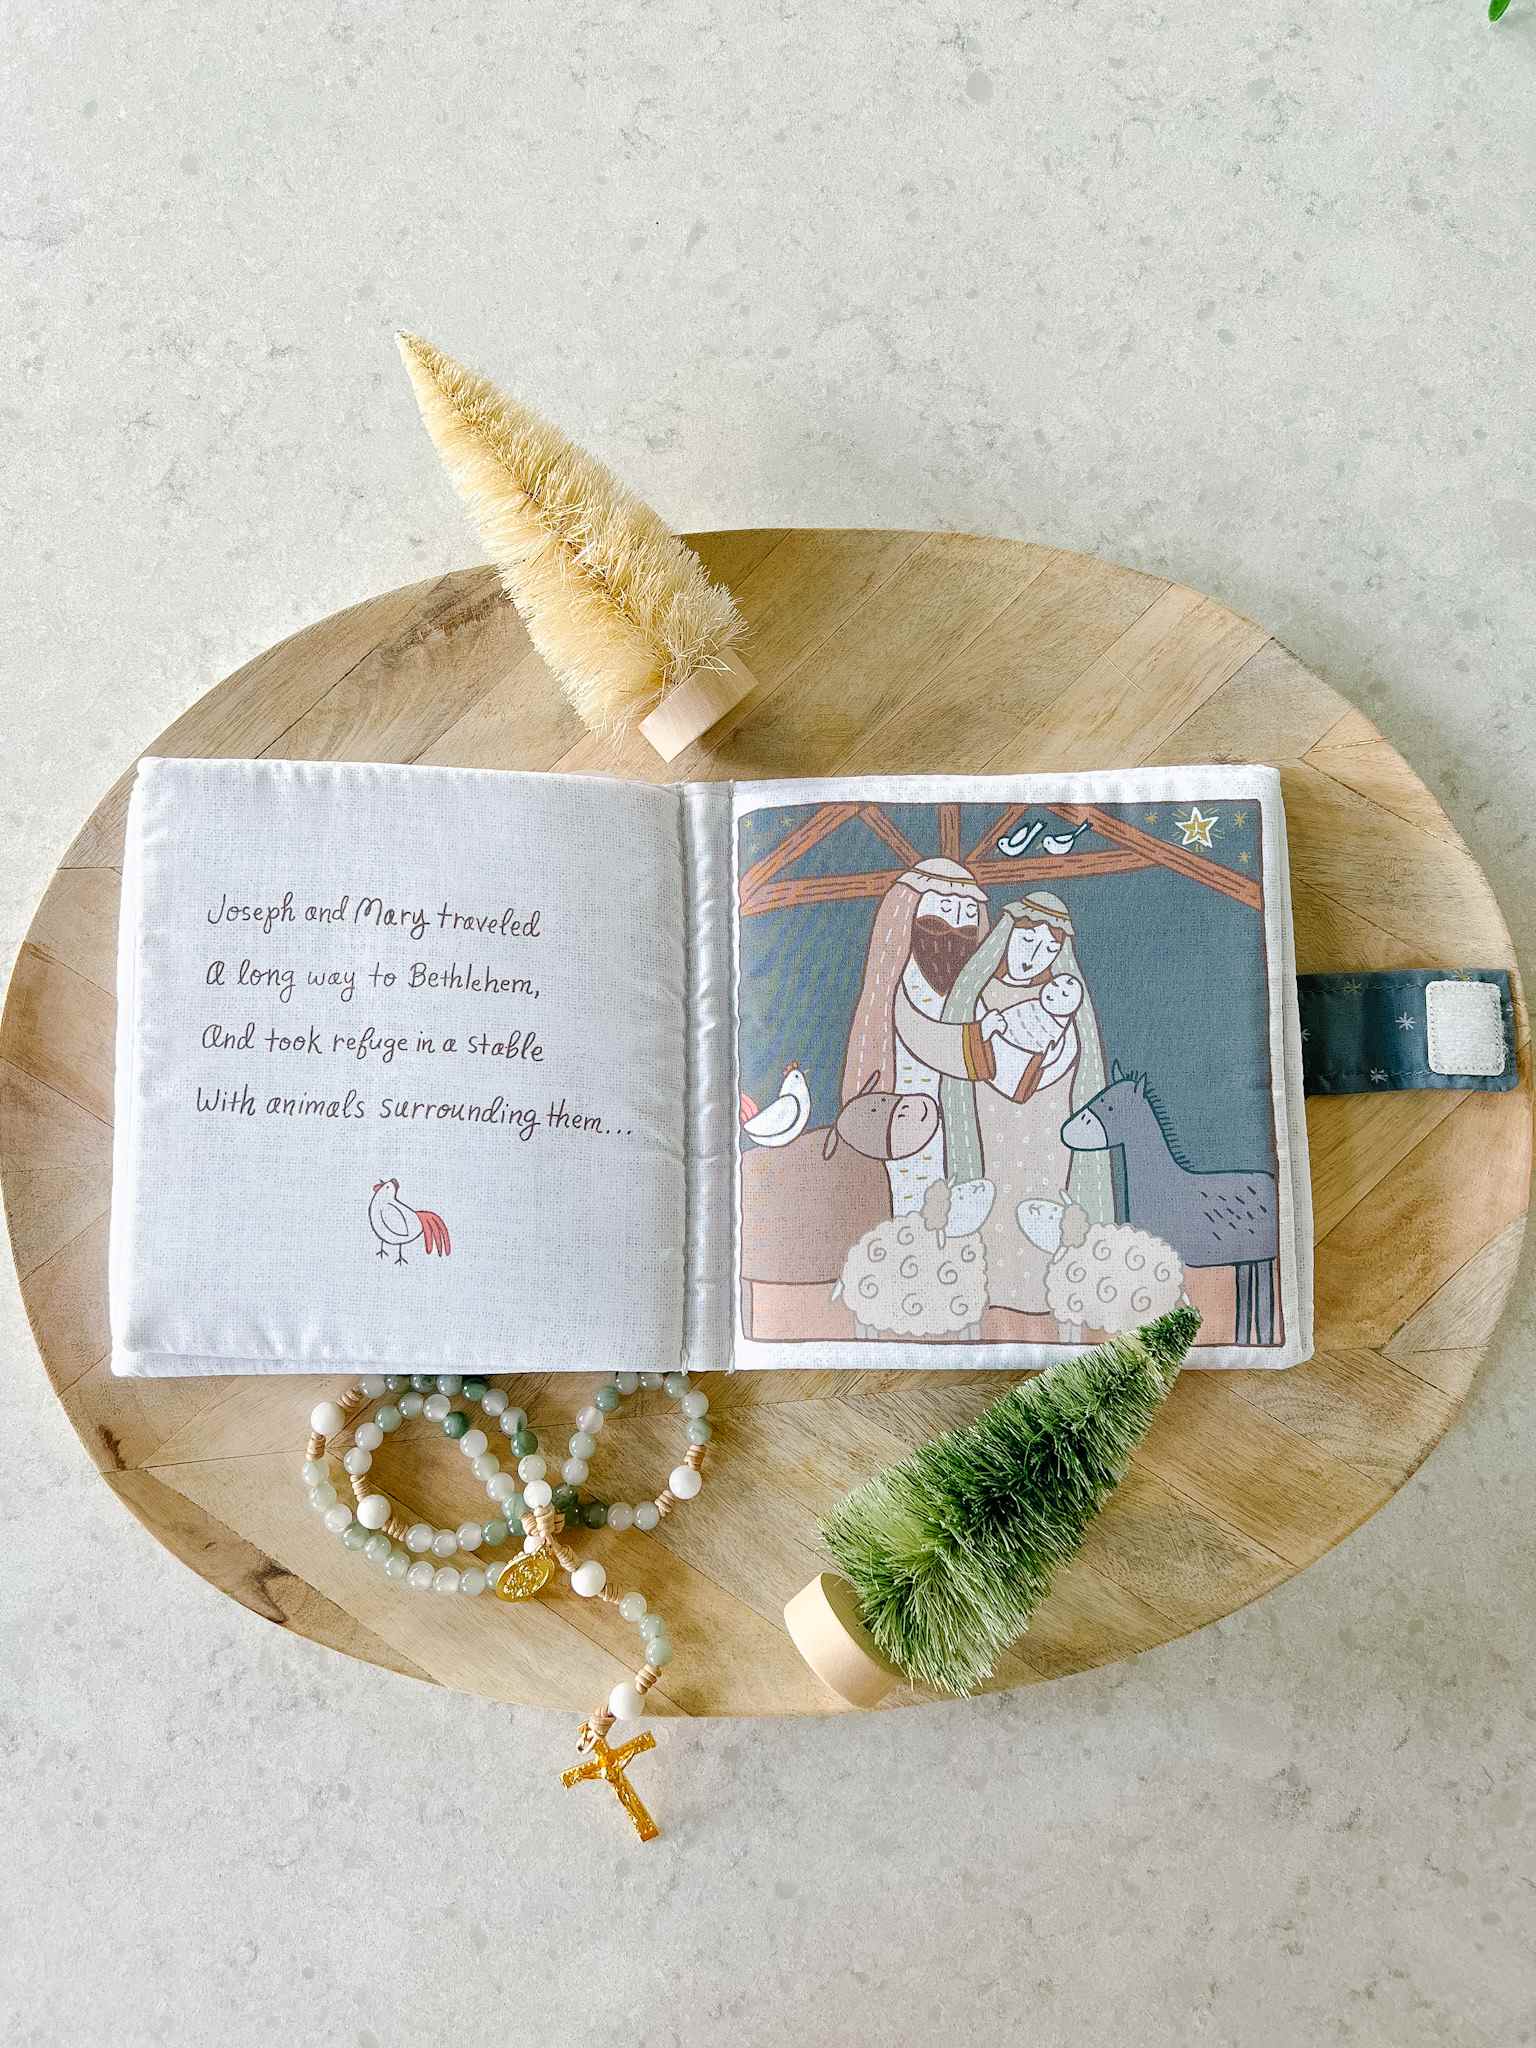 Joseph and Mary traveled
A long way to Bethlehem,
And took refuge in a stable
With animals surrounding them...